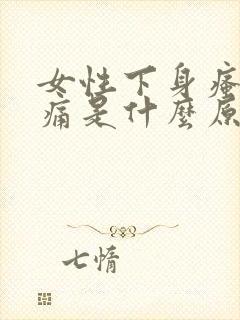 女性下身瘙
痛是什麼原
七情